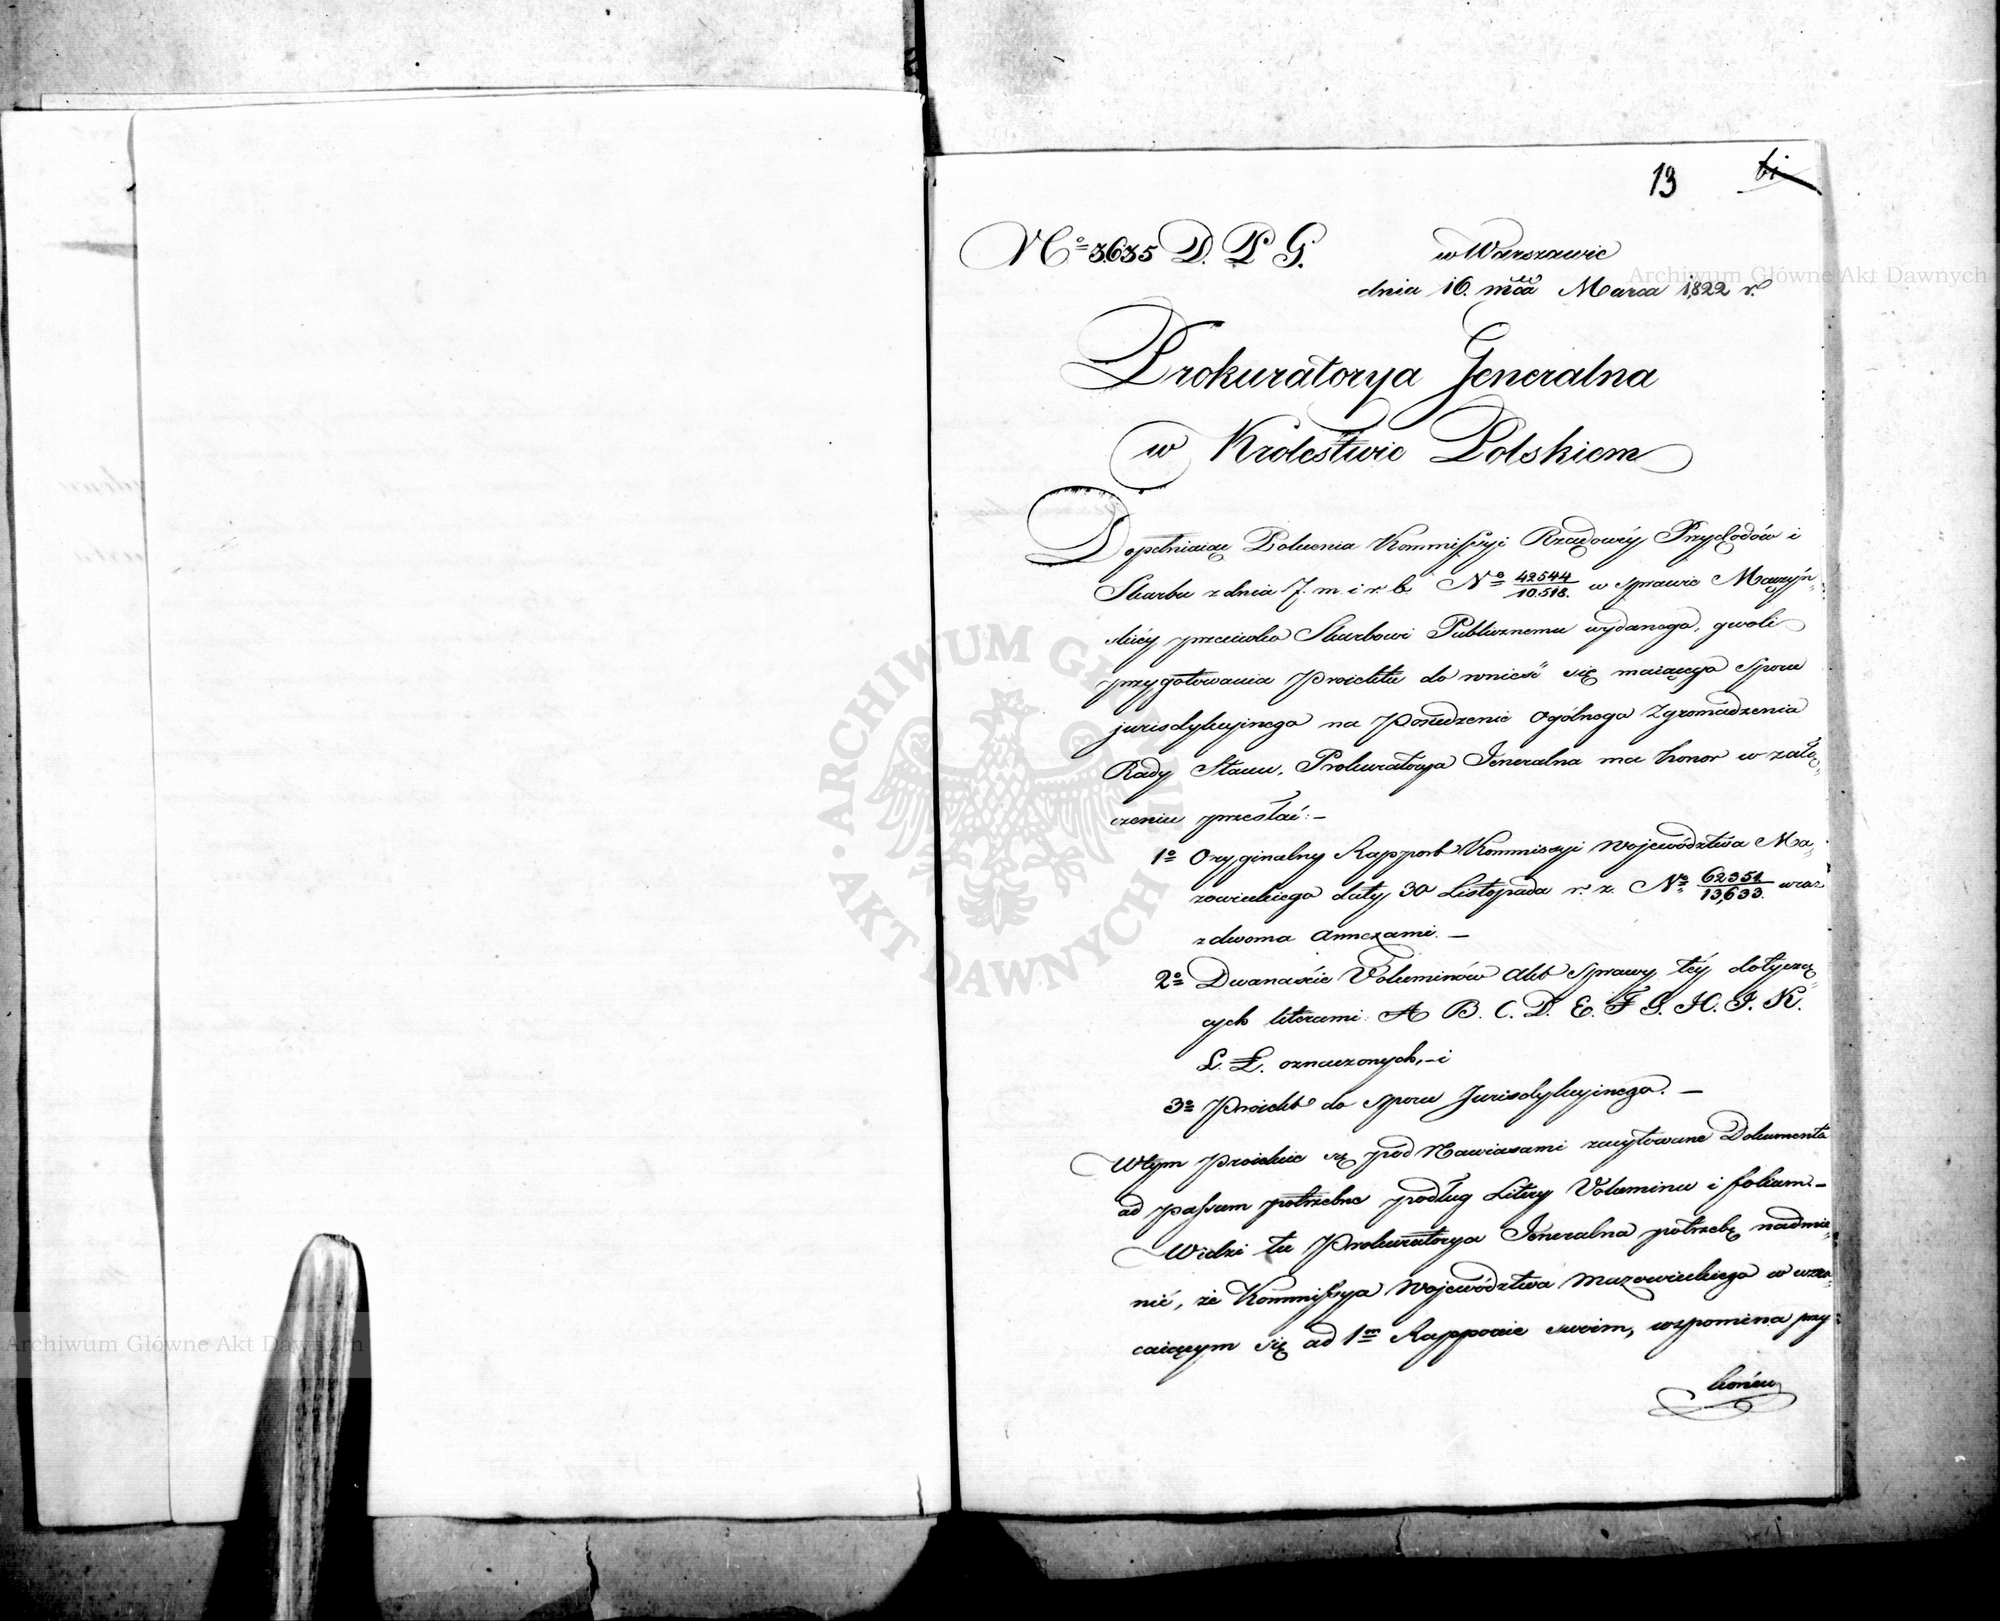 13
N<sup>o</sup> 3635 D. P. G.
w Warszawie
dnia 16. mca Marca 1822 r.
Prokuratorya Generalna
w Krolestwie Polskiem
Dopełniaiąc Polecenia Kommissyi Rządowéy Przychodów i
Skarbu z dnia 7. m. i r. b. N<sup>o</sup> 42544/10.518. w sprawie
przeciwko Skarbowi Publicznemu wydanego, gwoli
przygotowania Proiektu do wnieść się maiącego Sporu
jurisdykcyjnego na Posiedzenie Ogólnego Zgromadzenia
Rady Stanu, Prokuratorya Jeneralna ma honor w załą-
czeniu przesłać: –
1<sup>o</sup> Oryginalny Rapport Kommissyi Województwa Ma-
zowieckiego daty 30 Listopada r. z. N<sup>o</sup> 62351/13,633. wraz
z dwoma Annexami. –
2<sup>o</sup> Dwanaście Voluminów Akt Sprawy téy dotyczą-
cych literami: A B. C. D. E. F G. H. I. K.
L. Ł. oznaczonych, – i
3<sup>o</sup> Proiekt do sporu Jurisdykcyjnego. –
W tym Proiekcie są pod Nawiasami zacytowane Dokumenta
ad passum potrzebne podług Litery Voluminu i folium. –
Widzi tu Prokuratorya Jeneralna potrzebę nadmie-
nić, że Kommissya Województwa Mazowieckiego w wzra-
caiącym się ad 1<sup>m</sup> Rapporcie swoim, wspomina przy
końcu
Archiwum Główne Akt Dawnych
ARCHIWUM GŁÓWNE AKT DAWNYCH
Archiwum Główne Akt Dawnych